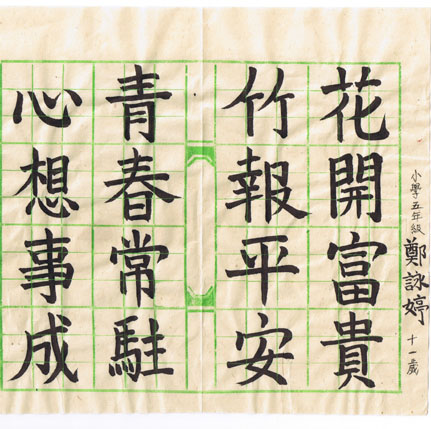 小學五年級 鄭詠婷 十一歲
花開富貴
竹報平安
青春常駐
心想事成